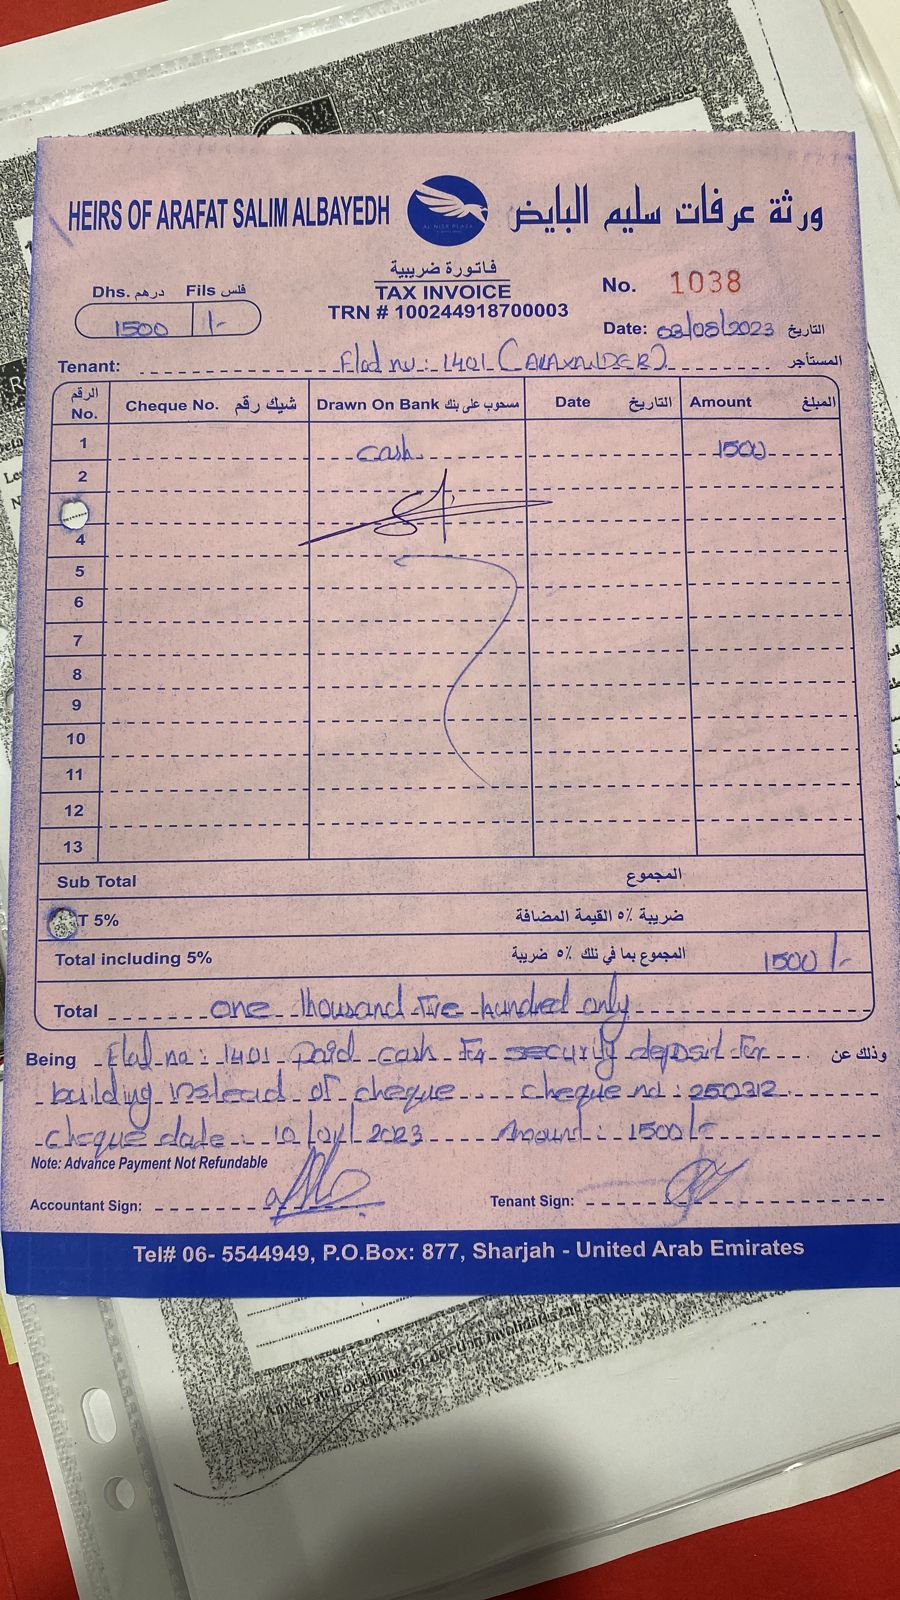 HEIRS OF ARAFAT SALIM ALBAYEDH
ورثة عرفات سليم البايض
AL NISR PLAZA
فاتورة ضريبية
TAX INVOICE
TRN # 100244918700003
No. 1038
Dhs. درهم Fils فلس
1500 /-
Date: 03/08/2023 التاريخ
Tenant: Flad no: 1401 (ALAXANDER) المستأجر
الرقم No. Cheque No. شيك رقم Drawn On Bank مسحوب على بنك Date التاريخ Amount المبلغ
1 cash 1500
2
4
5
6
7
8
9
10
11
12
13
Sub Total المجموع
T 5% ضريبة ٥٪ القيمة المضافة
Total including 5% المجموع بما في ذلك ٥٪ ضريبة 1500/-
Total one thousand five hundred only
Being Flad no: 1401 paid cash For security deposit for وذلك عن
building instead of cheque cheque no: 250312
cheque date: 2023 Amount: 1500/-
Note: Advance Payment Not Refundable
Accountant Sign: Tenant Sign:
Tel# 06- 5544949, P.O.Box: 877, Sharjah - United Arab Emirates